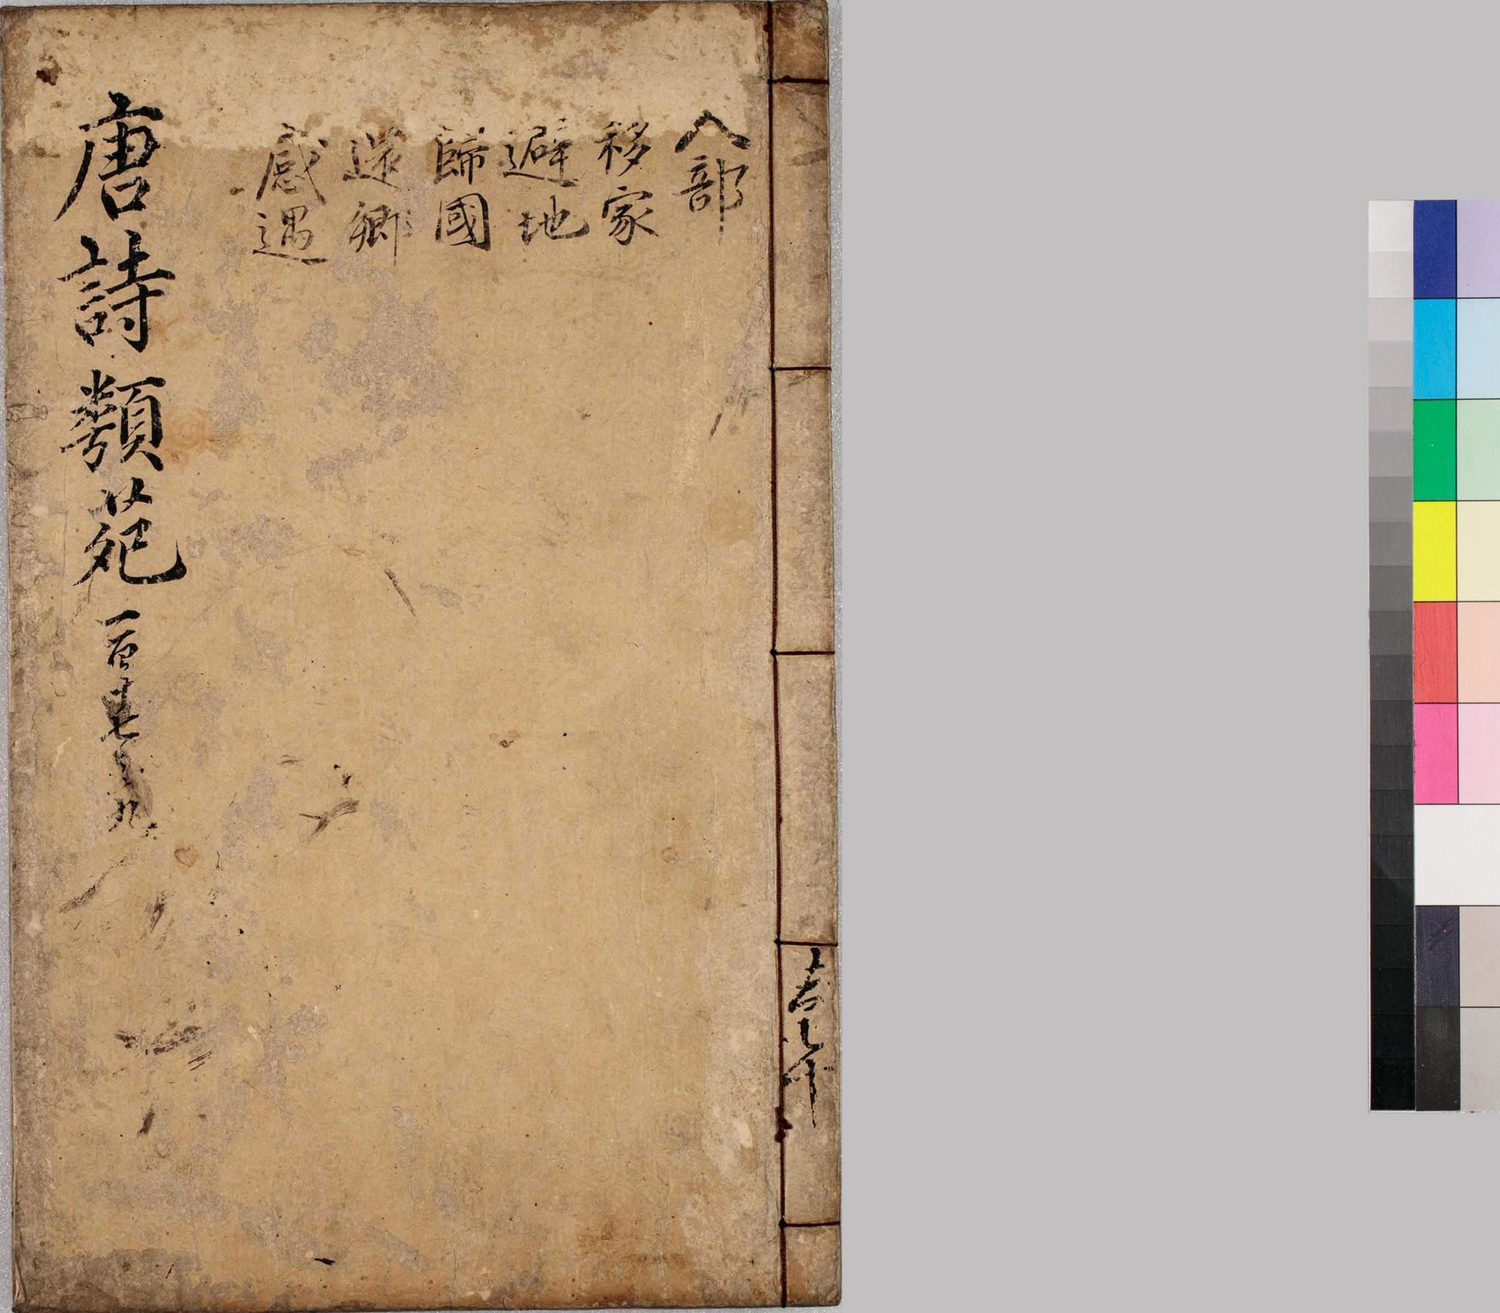 人部
移家
避地
歸國
還鄉
感遇
唐詩類苑
一百
七
九